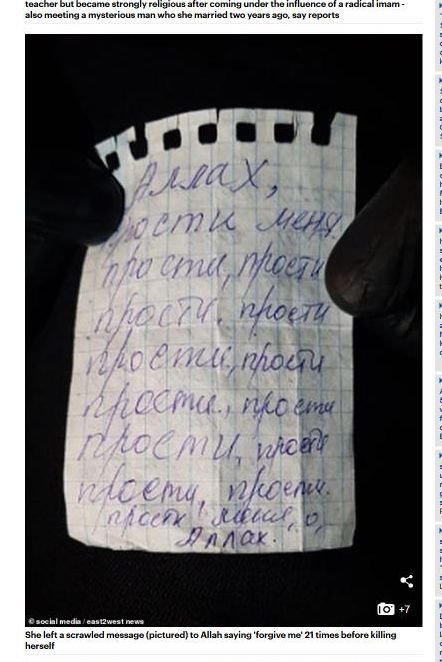 teacher but became strongly religious after coming under the influence of a radical imam -
also meeting a mysterious man who she married two years ago, say reports
Аллах,
прости меня.
прости, прости
прости, прости
прости, прости
прости, прости
прости, прости
прости, прости.
прости меня, о,
Аллах.
+7
© social media / east2west news
She left a scrawled message (pictured) to Allah saying 'forgive me' 21 times before killing
herself